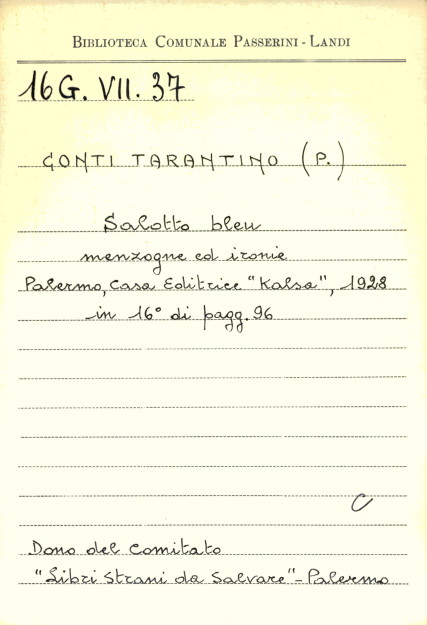 BIBLIOTECA COMUNALE PASSERINI - LANDI
16 G. VII. 37
CONTI TARANTINO (P.)
Salotto bleu
menzogne ed ironie
Palermo, Casa Editrice "Kalsa", 1928
in 16° di pagg. 96
C
Dono del Comitato
"Libri Strani da Salvare" - Palermo